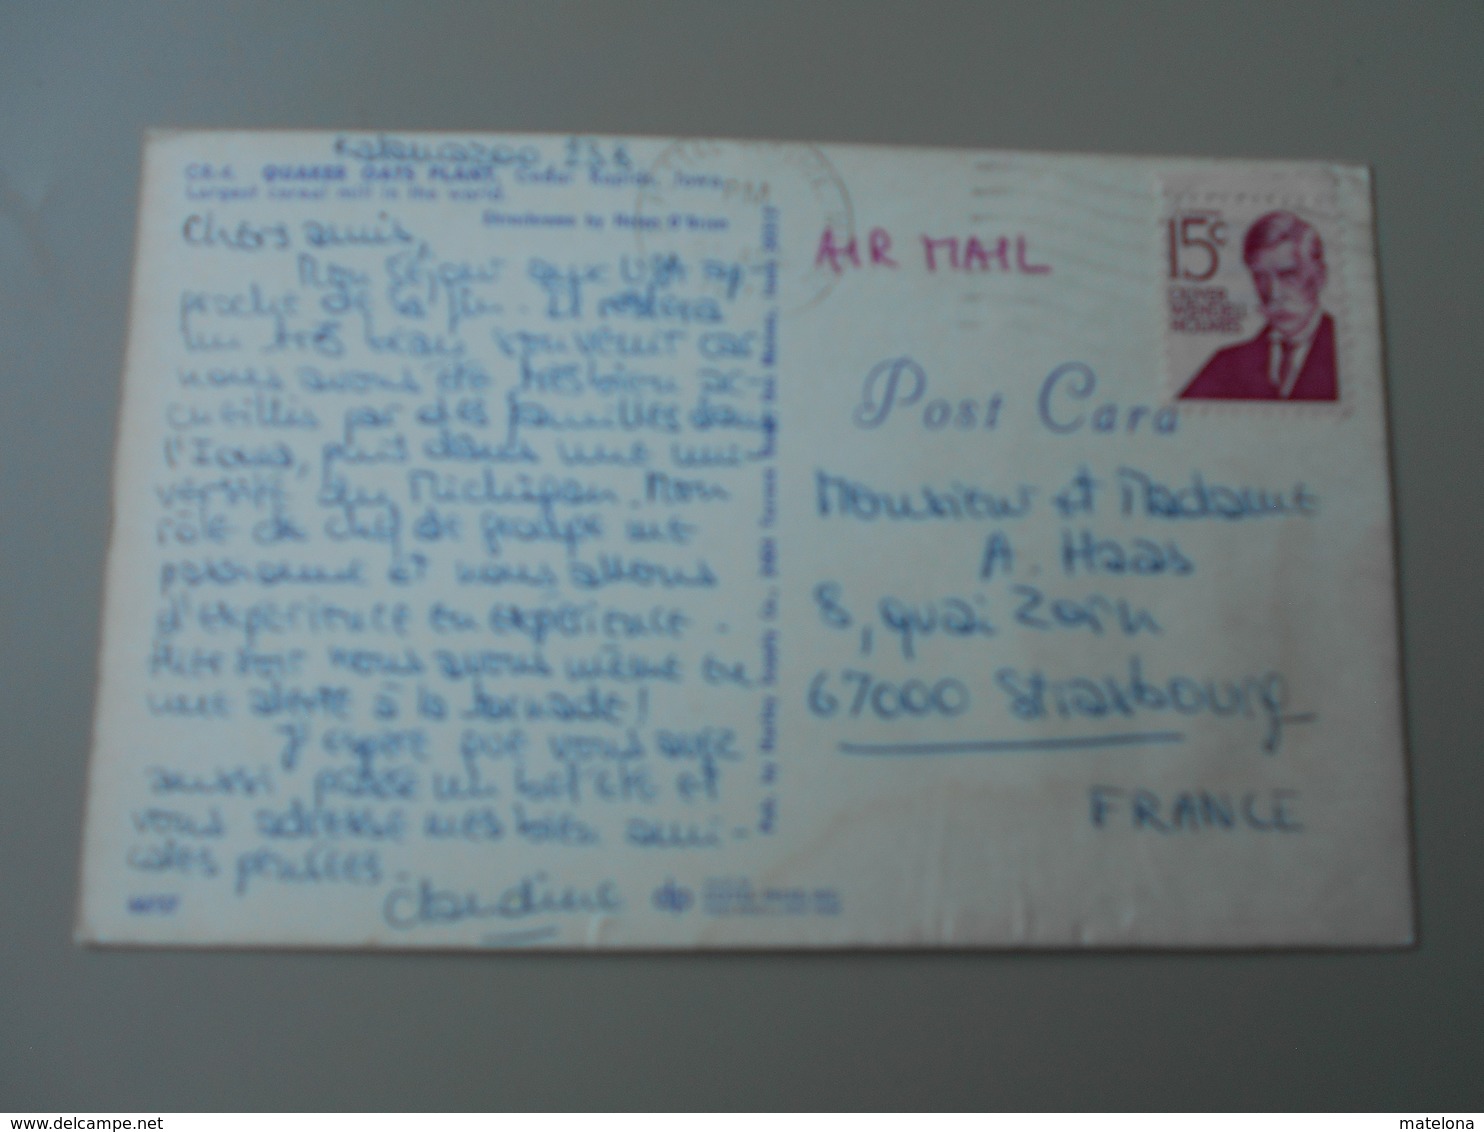 Kalamazoo 23.8
CR-4. QUAKER OATS PLANT, Cedar Rapids, Iowa
Largest cereal mill in the world.
Ektachrome by Helen O'Brien
Chers amis,
Mon séjour aux USA ap-
proche de la fin. Il restera
un très beau souvenir car
nous avons été très bien ac-
cueillis par des familles dans
l'Iowa, puis dans une uni-
versité du Michigan. Mon
rôle de chef de groupe me
passionne et nous allons
d'expérience en expérience.
Hier soir nous avons même eu
une alerte à la tornade!
J'espère que vous avez
aussi passé un bel été et
vous adresse mes bien ami-
cales pensées.
Claudine
AIR MAIL
15c
OLIVER
WENDELL
HOLMES
Post Card
Monsieur et Madame
A. Haas
8, quai Zorn
67000 Strasbourg
FRANCE
matelona